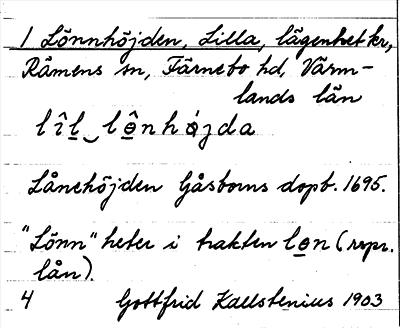 1 Lönnhöjden, Lilla, lägenhet kr,
Rämens sn, Färnebo hd, Värm-
lands län
lîl̲‿lô̲nhó̲jda
Lånehöjden Gåsborns dopb. 1695.
"Lönn" heter i trakten lo̲n (repr.
lån).
4 Gottfrid Kallstenius 1903